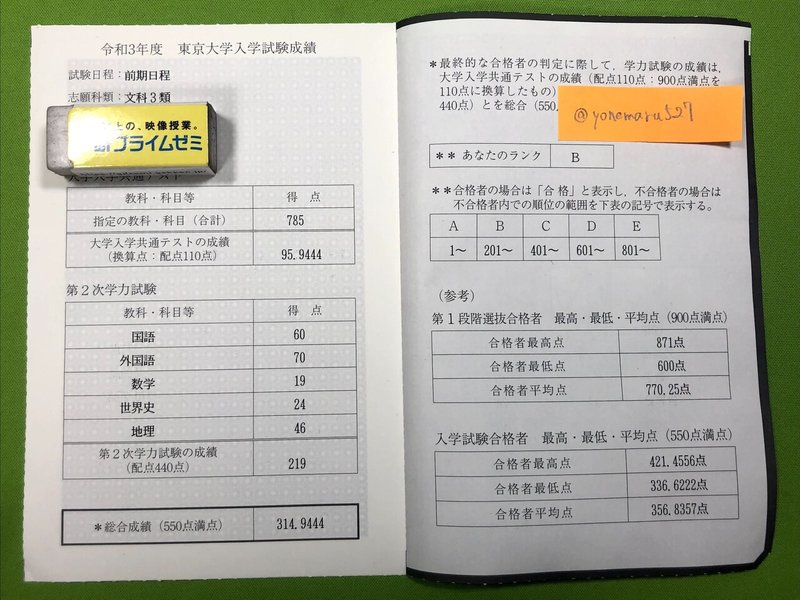 令和3年度 東京大学入学試験成績
試験日程：前期日程
志願科類：文科3類
上の、映像授業。
プライムゼミ
大学入学共通テスト
教科・科目等 得 点
指定の教科・科目（合計） 785
大学入学共通テストの成績
（換算点：配点110点） 95.9444
第2次学力試験
教科・科目等 得 点
国語 60
外国語 70
数学 19
世界史 24
地理 46
第2次学力試験の成績
（配点440点） 219
＊総合成績（550点満点） 314.9444
＊最終的な合格者の判定に際して，学力試験の成績は，
大学入学共通テストの成績（配点110点：900点満点を
110点に換算したもの）
440点）とを総合（550
@yonemaru527
＊＊ あなたのランク B
＊＊合格者の場合は「合 格」と表示し，不合格者の場合は
不合格者内での順位の範囲を下表の記号で表示する。
A B C D E
1～ 201～ 401～ 601～ 801～
（参考）
第1段階選抜合格者 最高・最低・平均点（900点満点）
合格者最高点 871点
合格者最低点 600点
合格者平均点 770.25点
入学試験合格者 最高・最低・平均点（550点満点）
合格者最高点 421.4556点
合格者最低点 336.6222点
合格者平均点 356.8357点